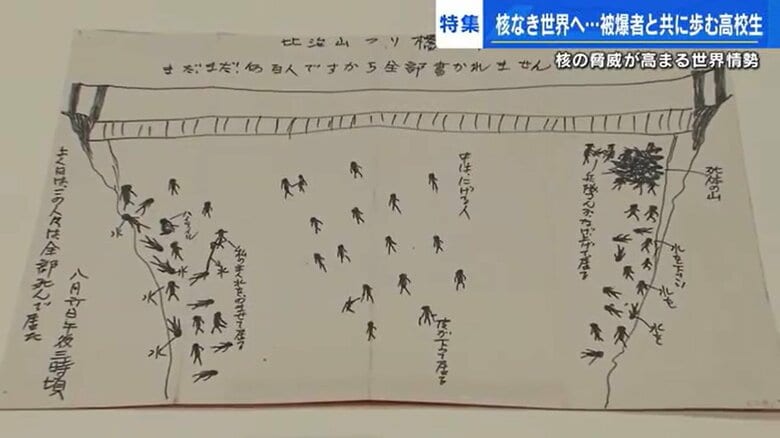 特集
核なき世界へ…被爆者と共に歩む高校生
核の脅威が高まる世界情勢
比治山ツリ橋
まだまだ!何百人ですから全部書かれません
死体の山
中は、にげる人
水を下さい
水を
水を
皮が下って居る
水
水
水
水
八月六日午後三時頃
よく日は、この人々は全部死んで居た